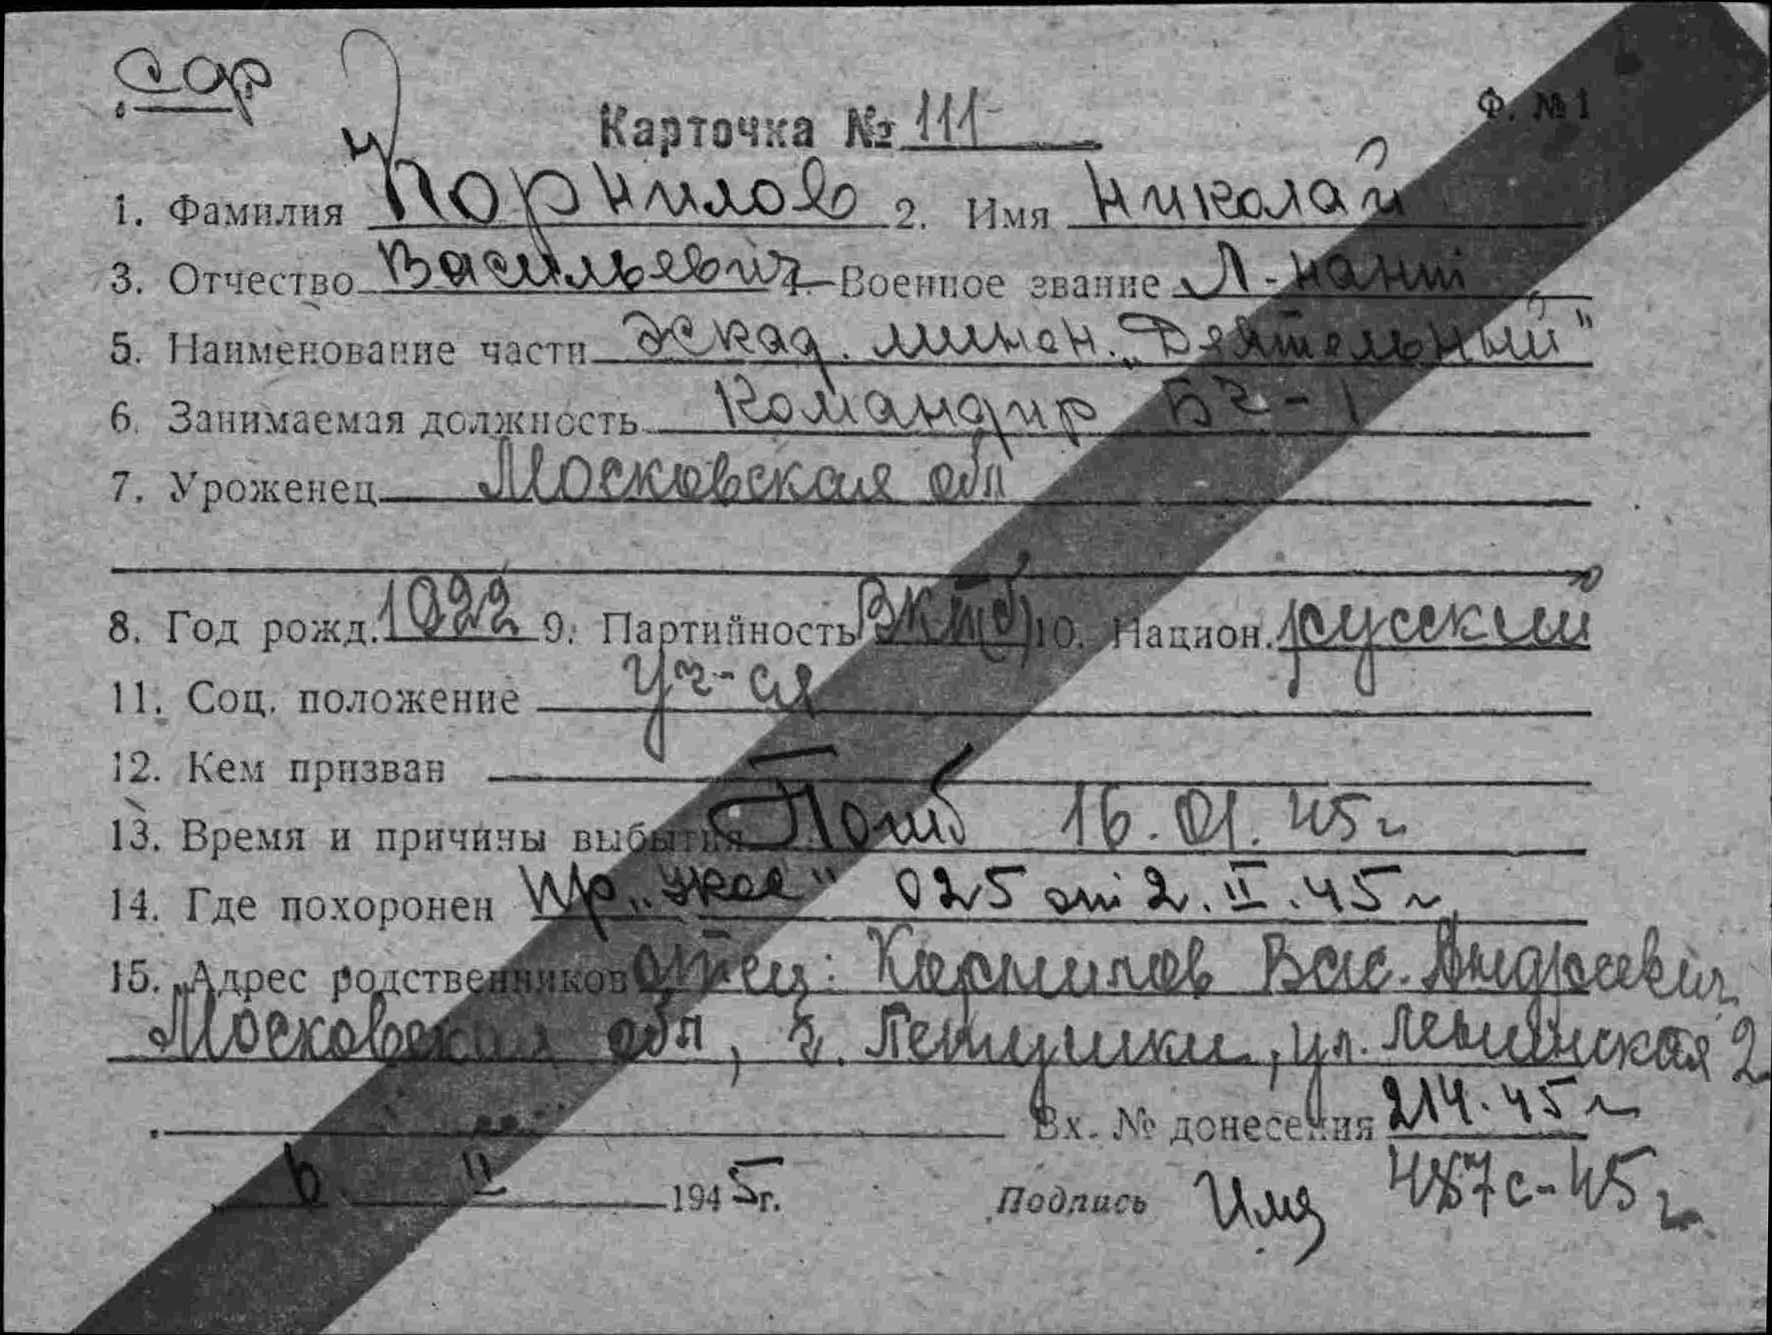 Сар
Карточка № 111
Ф. № 1
1. Фамилия Корнилов 2. Имя Николай
3. Отчество Васильевич 4. Военное звание Л-нант
5. Наименование части Эскад. минон. „Деятельный"
6. Занимаемая должность Командир БЧ-1
7. Уроженец Московская обл
8. Год рожд. 1922 9. Партийность ВКП(б) 10. Национ. русский
11. Соц. положение уч-ся
12. Кем призван
13. Время и причины выбытия Погиб 16.01.45г
14. Где похоронен Пр. 025 от 2.II.45г
15. Адрес родственников отец: Корнилов Вас. Андреевич
Московская обл, г. Петушки, ул. Ленинская 2
Вх. № донесения 214.45г
6 II 1945г. Подпись 487с-45г